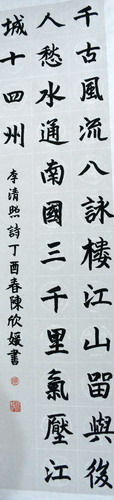 千古風流八詠樓江山留與後
人愁水通南國三千里氣壓江
城十四州
李清照詩丁酉春陳欣媛書